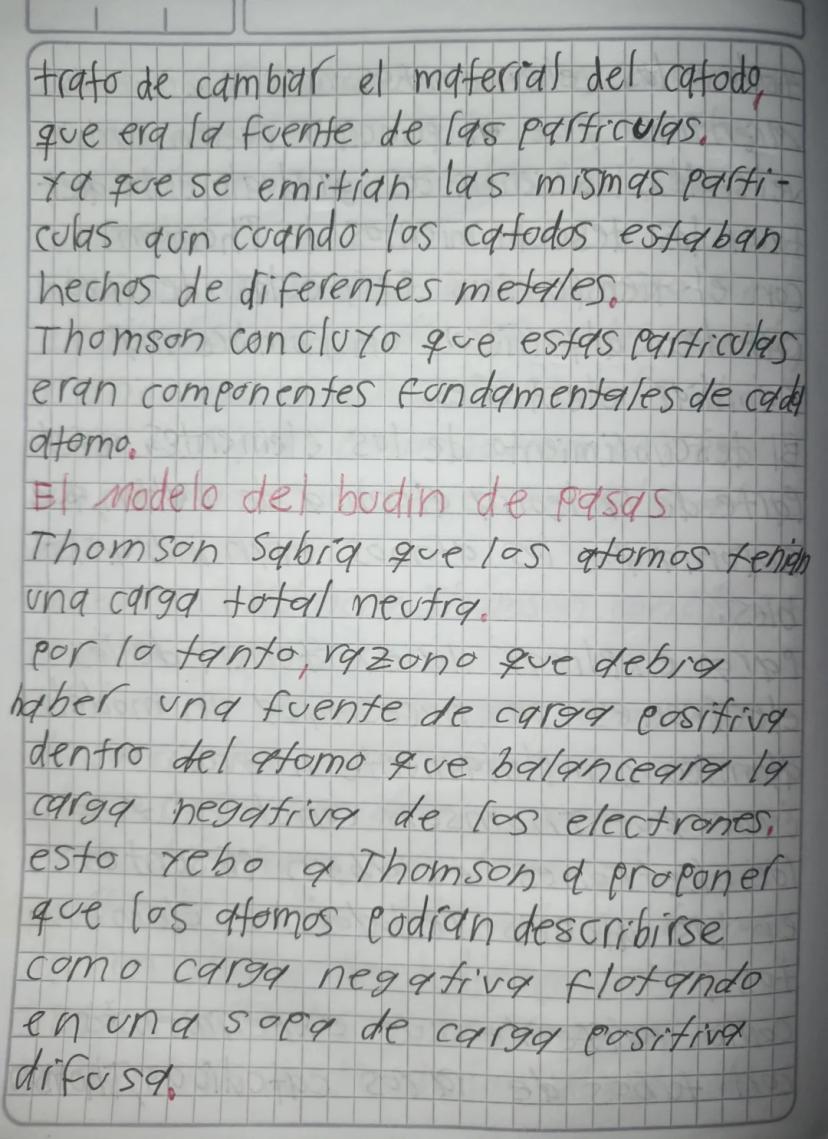 trato de cambiar el material del catodo,
que era la fuente de las particulas.
ya que se emitian las mismas parti-
culas aun cuando los catodos estaban
hechos de diferentes metales.
Thomson concluyo que estas particulas
eran componentes fundamentales de cada
atomo.
El Modelo del budin de pasas
Thomson sabia que los atomos tenian
una carga total neutra.
por lo tanto, razono que debia
haber una fuente de carga positiva
dentro del atomo que balanceara la
carga negativa de los electrones.
esto yebo a Thomson a proponer
que los atomos podian describirse
como carga negativa flotando
en una sopa de carga positiva
difusa.